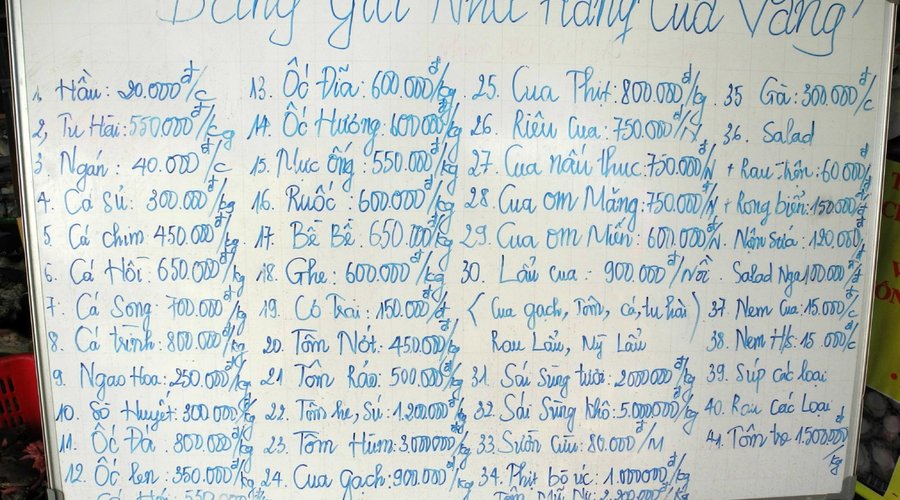 Bảng Giá Nhà Hàng Cua Vàng
1. Hầu: 20.000đ/c
2, Tu Hài: 550.000đ/kg
3. Ngán: 40.000đ/c
4. Cá Sủ: 300.000đ/kg
5. Cá chim 450.000đ/kg
6. Cá Hồi: 650.000đ/kg
7. Cá Song: 700.000đ/kg
8. Cá trình: 800.000đ/kg
9. Ngao Hoa: 250.000đ/kg
10. Sò Huyết: 300.000đ/kg
11. Ốc Đá: 800.000đ/kg
12. Ốc len: 350.000đ/kg
550.000đ/kg
13. Ốc Đĩa: 600.000đ/kg
14. Ốc Hương: 600.000đ/kg
15. Mực ống: 550.000đ/kg
16. Ruốc: 600.000đ/kg
17. Bề Bề: 650.000đ/kg
18. Ghẹ: 600.000đ/kg
19. Cồ Trai: 150.000đ/đ
20. Tôm Nớt: 450.000đ/kg
21 Tôm Rảo: 500.000đ/kg
22. Tôm he, Sú: 1.200.000đ/kg
23. Tôm Hùm: 3.000.000đ/kg
24. Cua gạch: 900.000đ/kg
25. Cua Thịt: 800.000đ/kg
26. Riêu Cua: 750.000đ/N
27. Cua nấu thuc: 750.000đ/N
28. Cua om Măng: 750.000đ/N
29. Cua om Miến: 600.000đ/N.
30. Lẩu cua: 900.000đ/Nồi
(Cua gạch, Tôm, cá, tu hài)
Rau Lẩu, Mỹ Lẩu
31. Sái Sùng tươi: 2000.000đ/kg
32. Sái Sùng khô: 5.000.000đ/kg
33. Sườn Cừu: 80.000đ/M
34. Thịt bò úc: 1.000.000đ/kg
Tôm Mũ Ni: 2.200.000đ/kg
35 Gà: 300.000đ/c
36. Salad
+ Rau trộn: 60.000đ
+ Rong biển: 150.000đ/đ
Nộm Sứa: 120.000đ/đ
Salad Nga 100.000đ/đ
37. Nem Cua: 15.000đ/c
38. Nem H/s: 15.000đ/c
39. Súp các loại
40. Rau các Loại
41. Tôm he 1500.000đ/kg